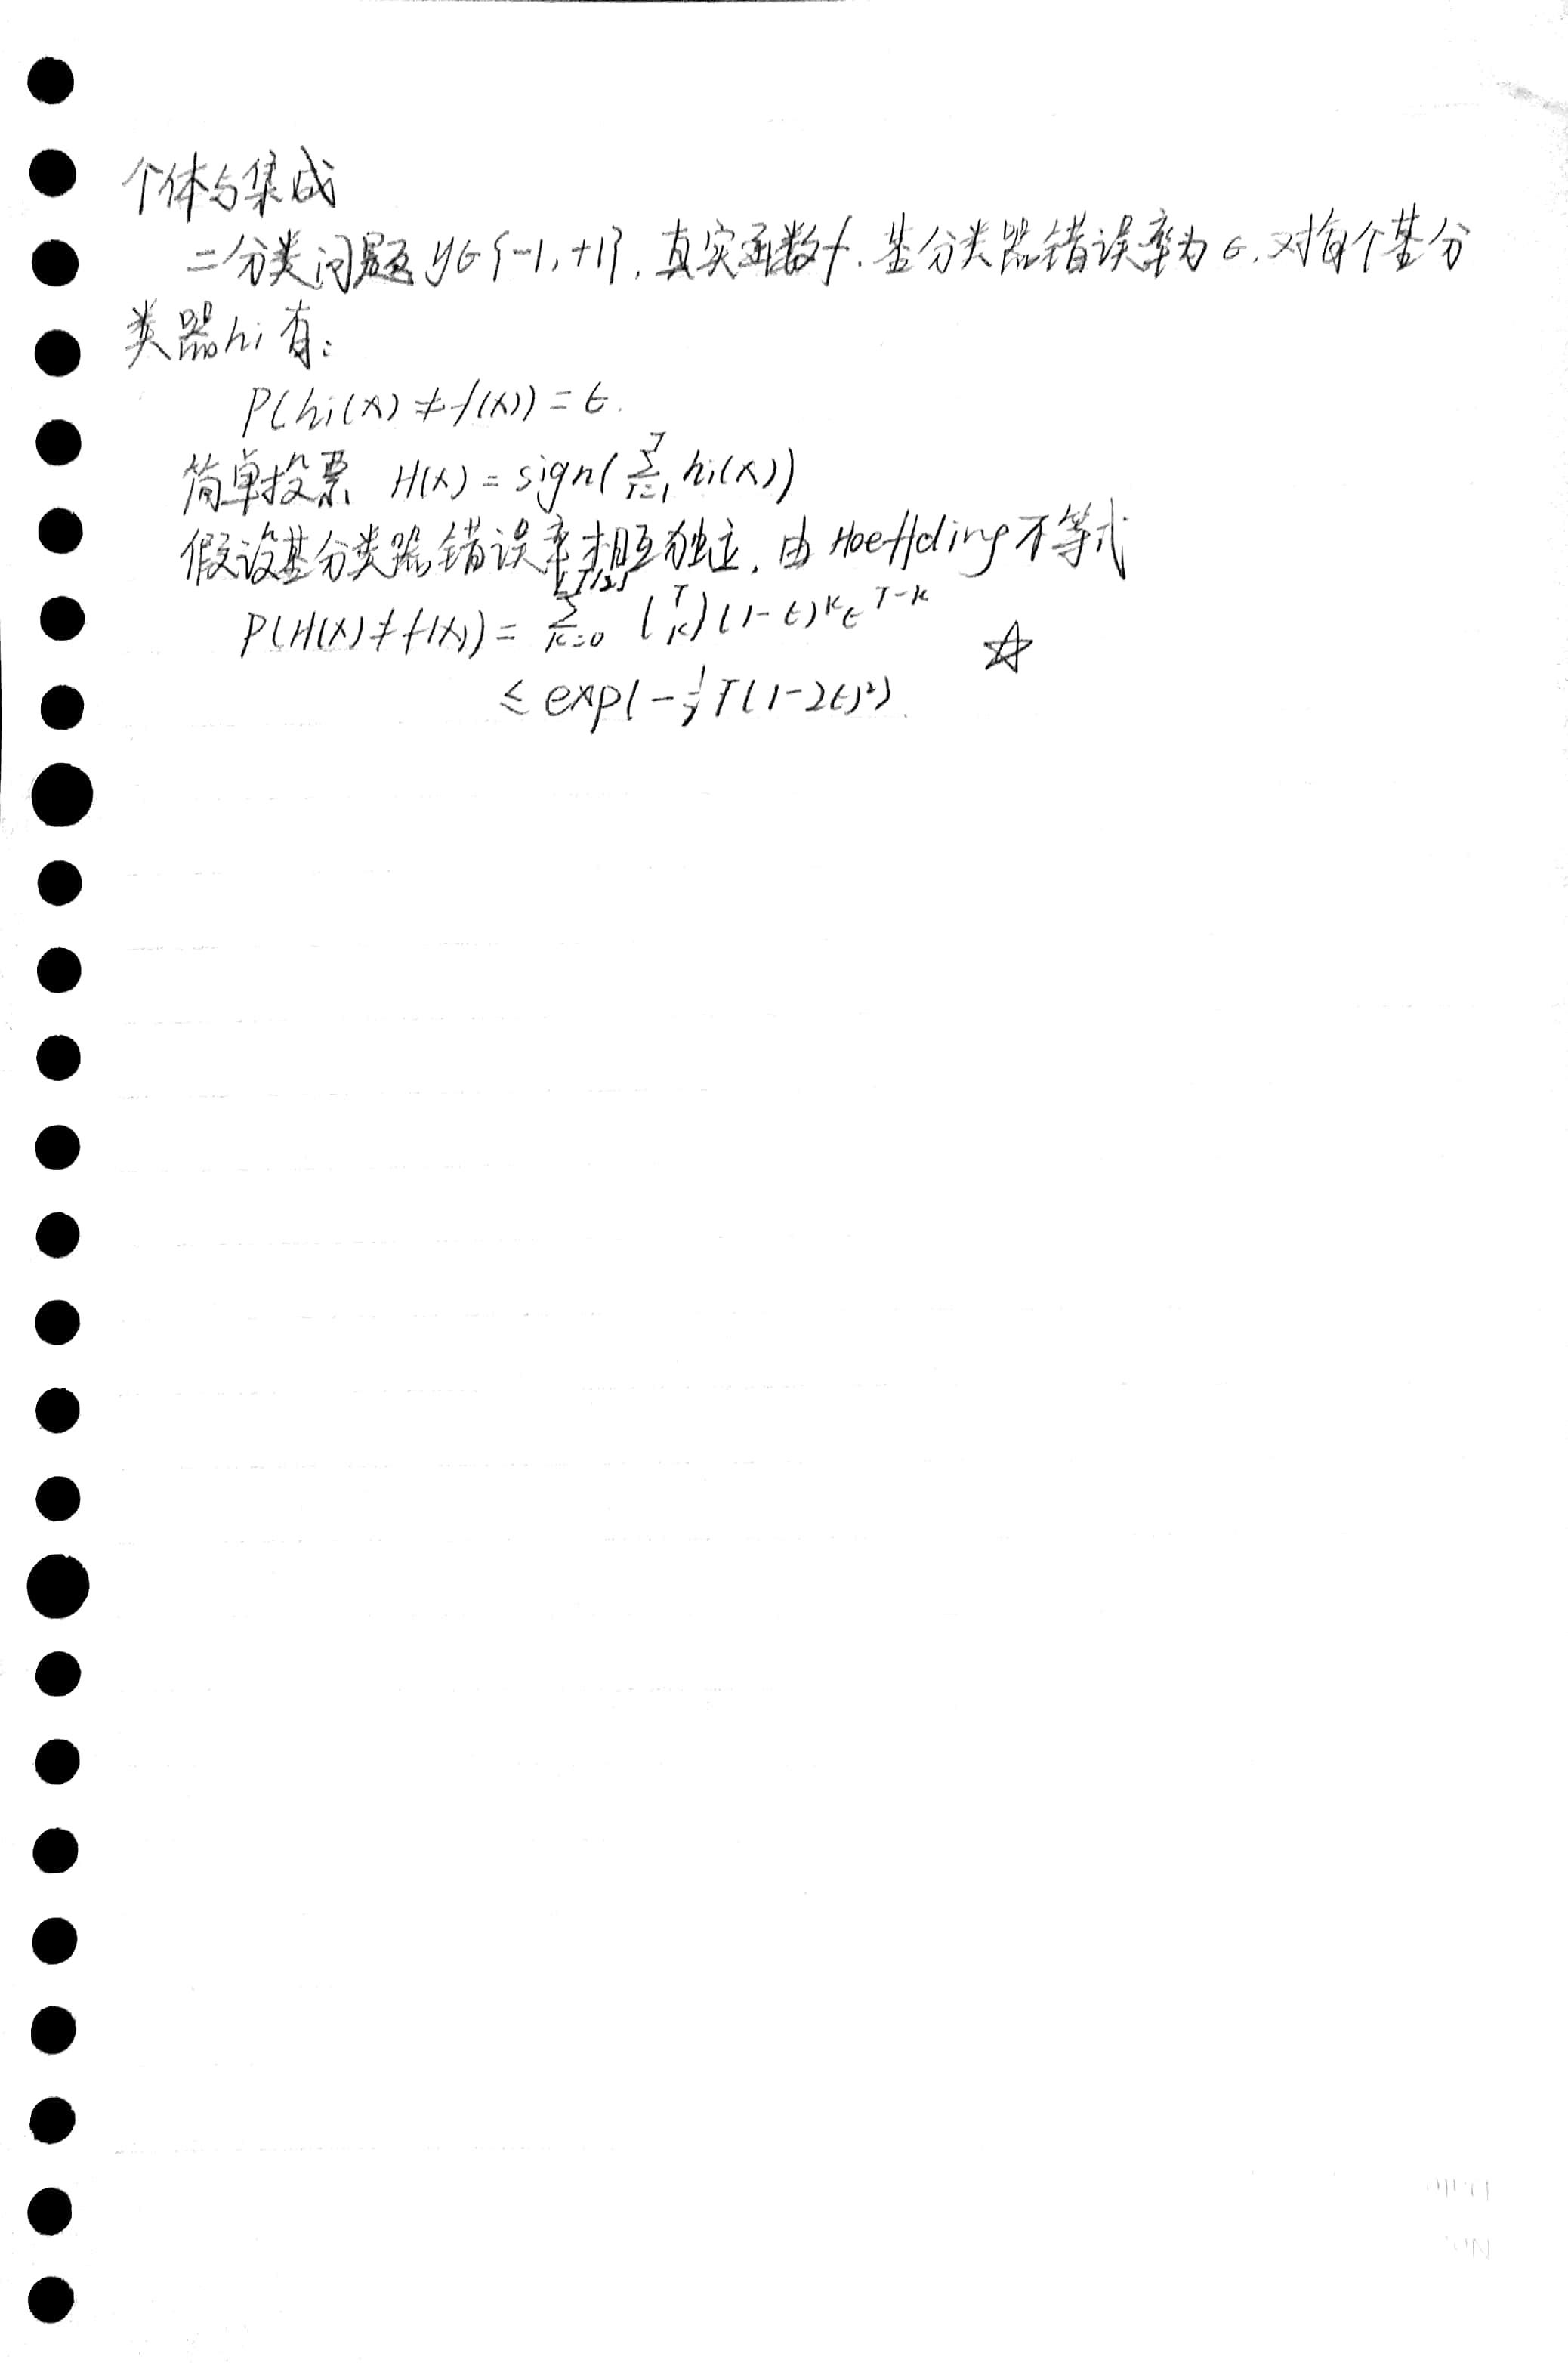 个体与集成
二分类问题 y∈{-1,+1}, 真实函数f. 基分类器错误率为ϵ, 对每个基分
类器hi有:
P(hi(x)≠f(x))=ϵ.
简单投票 H(x)=sign(∑_{i=1}^{T} hi(x))
假设基分类器错误率相互独立, 由Hoeffding不等式
P(H(x)≠f(x))=∑_{k=0}^{⌊T/2⌋} (T k)(1-ϵ)^k ϵ^{T-k} ☆
≤exp(-½T(1-2ϵ)²).